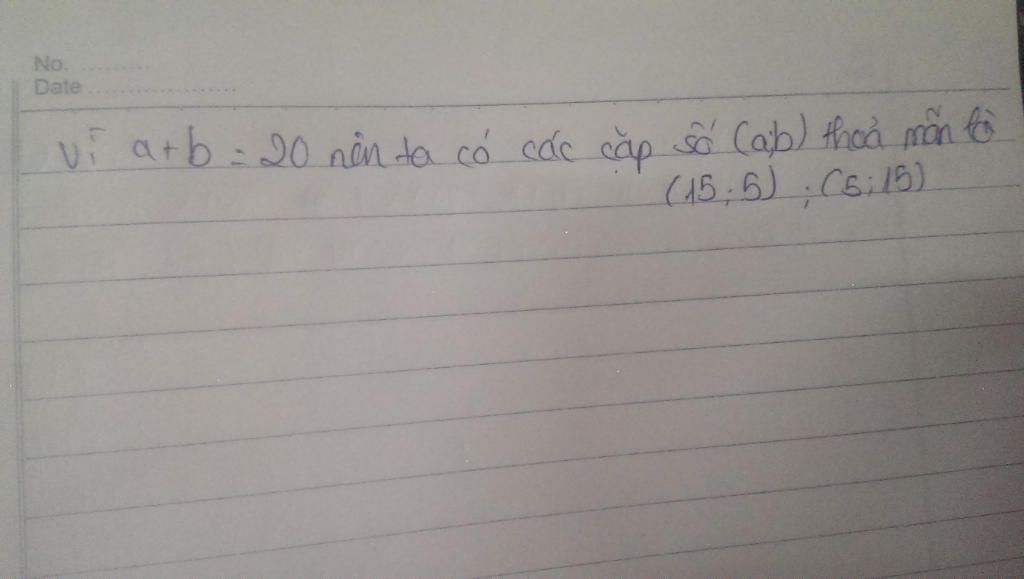 No. ..........
Date ....................
Vì a+b = 20 nên ta có các cặp số (a;b) thoả mãn là
(15;5) ; (5;15)